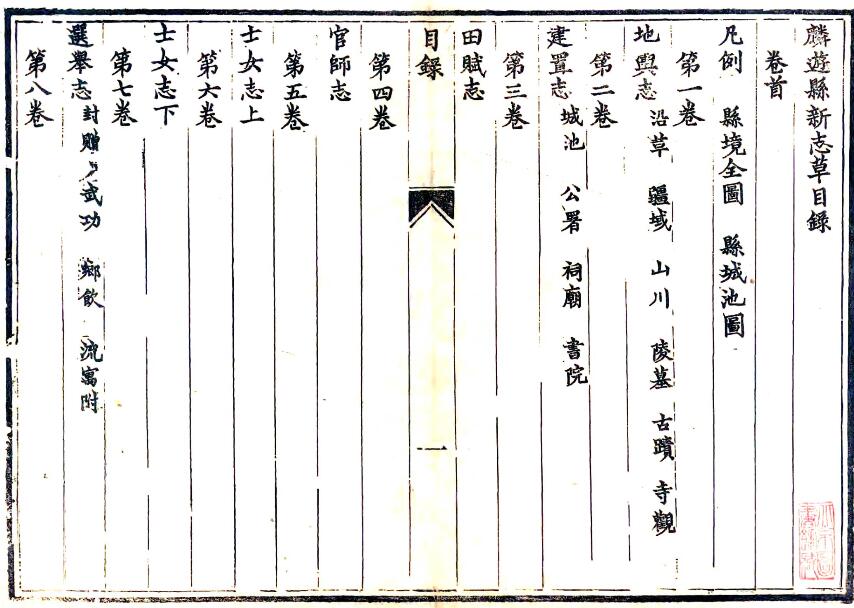 麟遊縣新志草目錄
卷首
凡例 縣境全圖 縣城池圖
第一卷
地輿志 沿革 疆域 山川 陵墓 古蹟 寺觀
第二卷
建置志 城池 公署 祠廟 書院
第三卷
田賦志
目錄 一
第四卷
官師志
第五卷
士女志上
第六卷
士女志下
第七卷
選舉志 封贈 武功 鄉飲 流寓附
第八卷